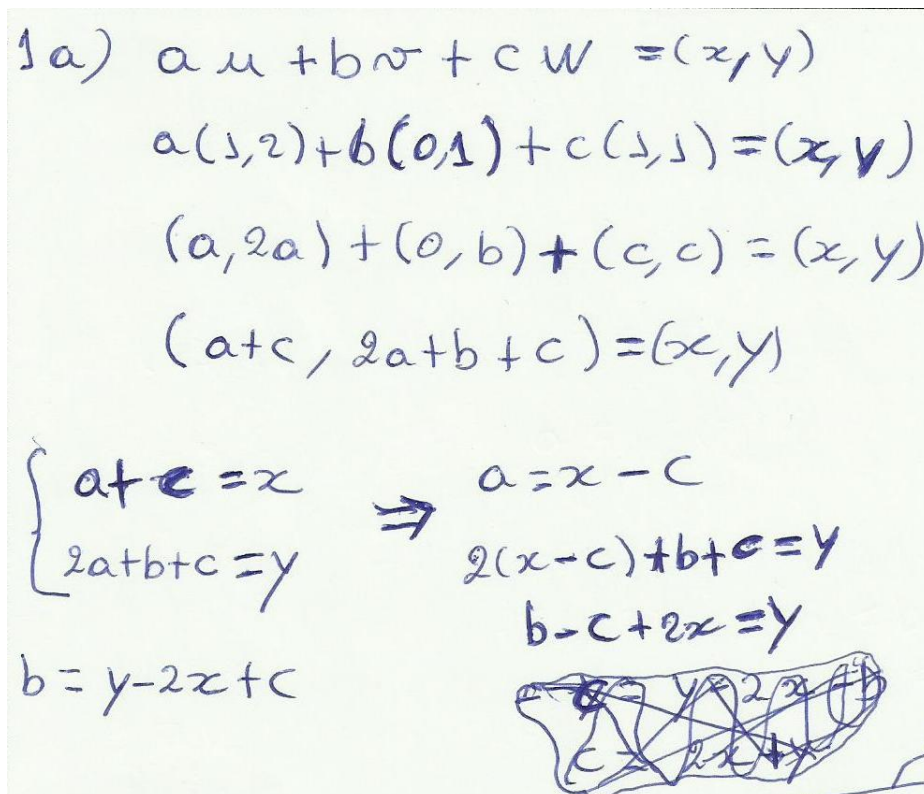 1a) au + bv + cw = (x, y)
a(1,2) + b(0,1) + c(1,1) = (x, y)
(a, 2a) + (0, b) + (c, c) = (x, y)
(a+c, 2a+b+c) = (x, y)
a+c = x ⇒ a = x - c
2a+b+c = y 2(x-c)+b+c = y
b - c + 2x = y
b = y - 2x + c